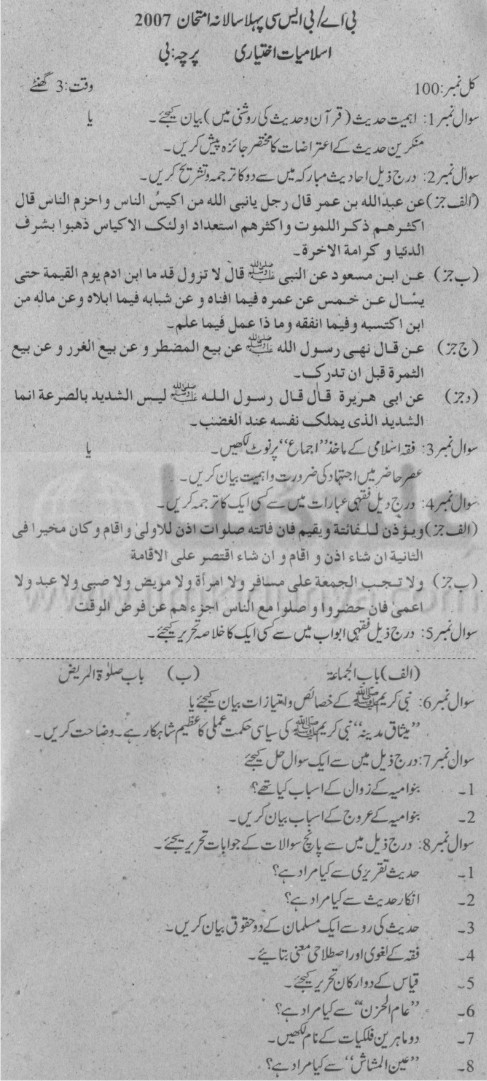 بی اے/بی ایس سی پہلا سالانہ امتحان 2007
اسلامیات اختیاری پرچہ: بی
کل نمبر: 100 وقت: 3 گھنٹے
سوال نمبر1: اہمیت حدیث (قرآن و حدیث کی روشنی میں) بیان کیجئے۔ یا
منکرین حدیث کے اعتراضات کا مختصر جائزہ پیش کریں۔
سوال نمبر2: درج ذیل احادیث مبارکہ میں سے دو کا ترجمہ و تشریح کریں۔
(الف جز) عن عبداللہ بن عمر قال رجل یانبی اللہ من اکیس الناس واحزم الناس قال
اکثرھم ذکر اللموت واکثرھم استعداد اولئک الاکیاس ذھبوا بشرف
الدنیا و کرامۃ الاخرۃ۔
(ب جز) عن ابن مسعود عن النبی ﷺ قال لا تزول قد ما ابن ادم یوم القیمۃ حتی
یسأل عن خمس عن عمرہ فیما افناہ و عن شبابہ فیما ابلاہ وعن مالہ من
این اکتسبہ وفیما انفقہ وما ذا عمل فیما علم۔
(ج جز) عن قال نھی رسول اللہ ﷺ عن بیع المضطر و عن بیع الغرر و عن بیع
الثمرۃ قبل ان تدرک۔
(د جز) عن ابی ھریرۃ قال قال رسول اللہ ﷺ لیس الشدید بالصرعۃ انما
الشدید الذی یملک نفسہ عند الغضب۔
سوال نمبر3: فقہ اسلامی کے ماخذ "اجماع" پر نوٹ لکھیں۔ یا
عصر حاضر میں اجتہاد کی ضرورت و اہمیت بیان کریں۔
سوال نمبر4: درج ذیل فقہی عبارات میں سے کسی ایک کا ترجمہ کریں۔
(الف جز) ویؤذن للفائتۃ ویقیم فان فاتتہ صلوات اذن للاولیٰ واقام و کان مخیرا فی
الثانیۃ ان شاء اذن و اقام و ان شاء اقتصر علی الاقامۃ
(ب جز) ولا تجب الجمعۃ علی مسافر ولا امرأۃ ولا مریض ولا صبی ولا عبد ولا
اعمیٰ فان حضروا و صلوا مع الناس اجزء ھم عن فرض الوقت
سوال نمبر5: درج ذیل فقہی ابواب میں سے کسی ایک کا خلاصہ تحریر کیجئے۔
(الف) باب الجماعۃ (ب) باب صلوٰۃ المریض
سوال نمبر6: نبی کریم ﷺ کے خصائص و امتیازات بیان کیجئے یا
"میثاق مدینہ" نبی کریم ﷺ کی سیاسی حکمت عملی کا عظیم شاہکار ہے۔ وضاحت کریں۔
سوال نمبر7: درج ذیل میں سے ایک سوال حل کیجئے
1۔ بنو امیہ کے زوال کے اسباب کیا تھے؟
2۔ بنو امیہ کے عروج کے اسباب بیان کریں۔
سوال نمبر8: درج ذیل میں سے پانچ سوالات کے جوابات تحریر کیجئے۔
1۔ حدیث تقریری سے کیا مراد ہے؟
2۔ انکار حدیث سے کیا مراد ہے؟
3۔ حدیث کی رو سے ایک مسلمان کے دو حقوق بیان کریں۔
4۔ فقہ کے لغوی اور اصطلاحی معنی بتائیے۔
5۔ قیاس کے دو ارکان تحریر کیجئے۔
6۔ "عام الحزن" سے کیا مراد ہے؟
7۔ دو ماہرین فلکیات کے نام لکھیں۔
8۔ "عین المشاش" سے کیا مراد ہے؟